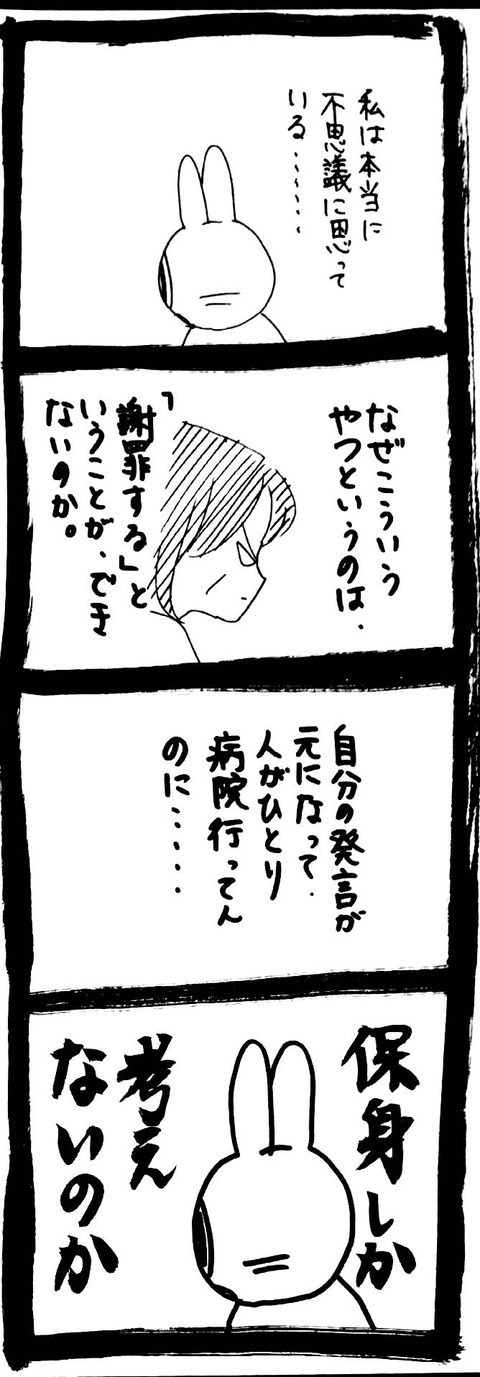 私は本当に
不思議に思って
いる・・・・・・
なぜこういう
やつというのは、
「謝罪する」と
いうことが、でき
ないのか。
自分の発言が
元になって、
人がひとり
病院行ってん
のに・・・・・
保身しか
考え
ないのか